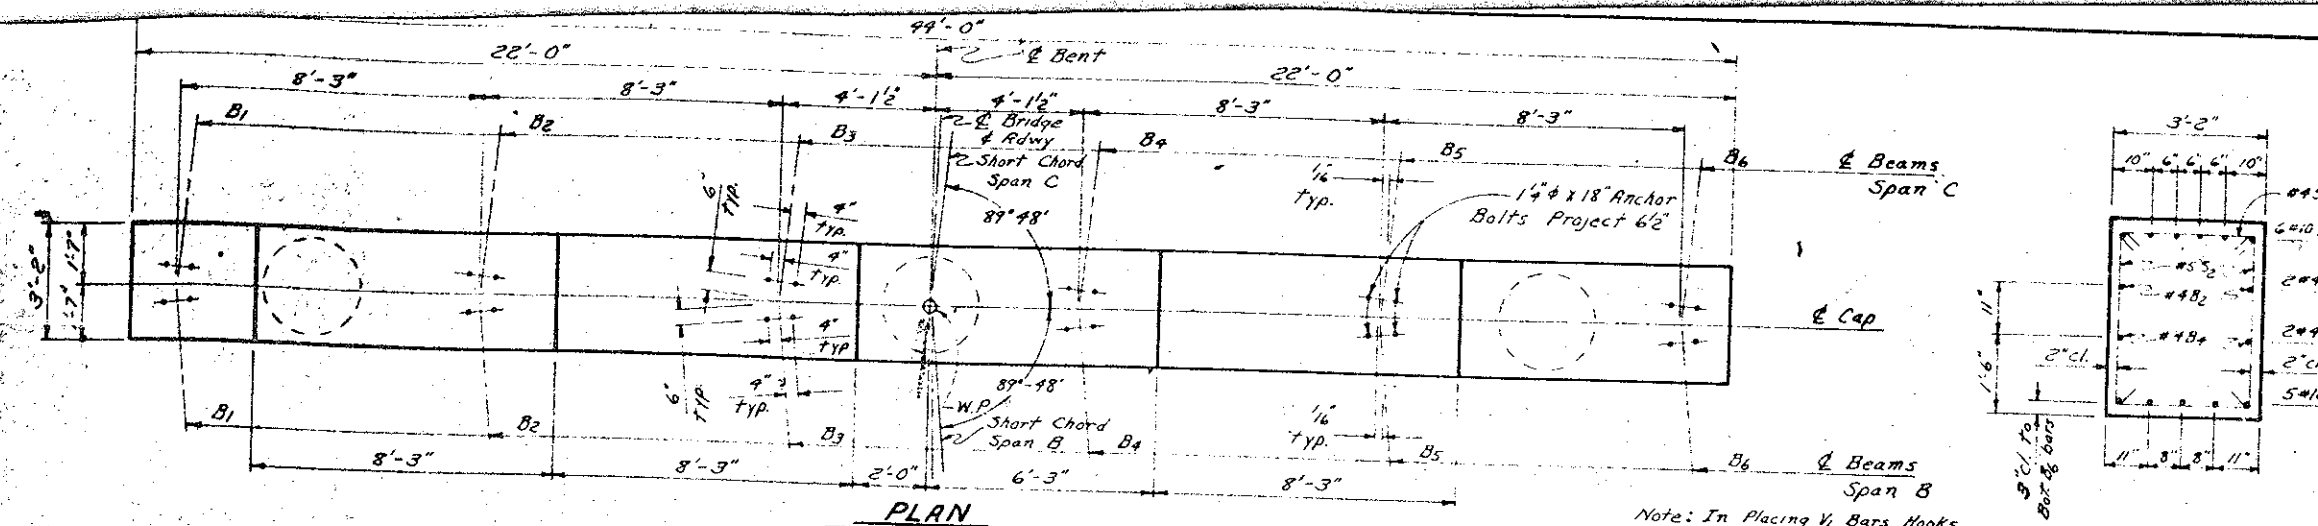 44'-0"
22'-0"
℄ Bent
22'-0"
8'-3"
8'-3"
4'-1½"
4'-1½"
8'-3"
8'-3"
B1
B2
B3
℄ Bridge
℄ Rdwy
Short Chord
Span C
B4
B5
B6
℄ Beams
Span C
6"
typ.
4"
typ.
1/16
typ.
1¼"ϕ x 18" Anchor
Bolts Project 6½"
89°48'
4"
typ.
3'-2"
1'-7"
1'-7"
℄ Cap
4"
typ
6"
typ.
4"
typ.
89°-48'
W.P.
Short Chord
Span B
1/16
typ.
B1
B2
B3
B4
B5
B6
℄ Beams
Span B
8'-3"
8'-3"
2'-0"
6'-3"
8'-3"
PLAN
Note: In Placing V1 Bars Hooks
3'-2"
10" 6" 6" 6" 10"
6#10
#5S2
#4B2
2#4
11"
#4B4
2#4
2"cl.
1'-6"
3"cl. to
Bot. B6 bars
11" 8" 8" 11"